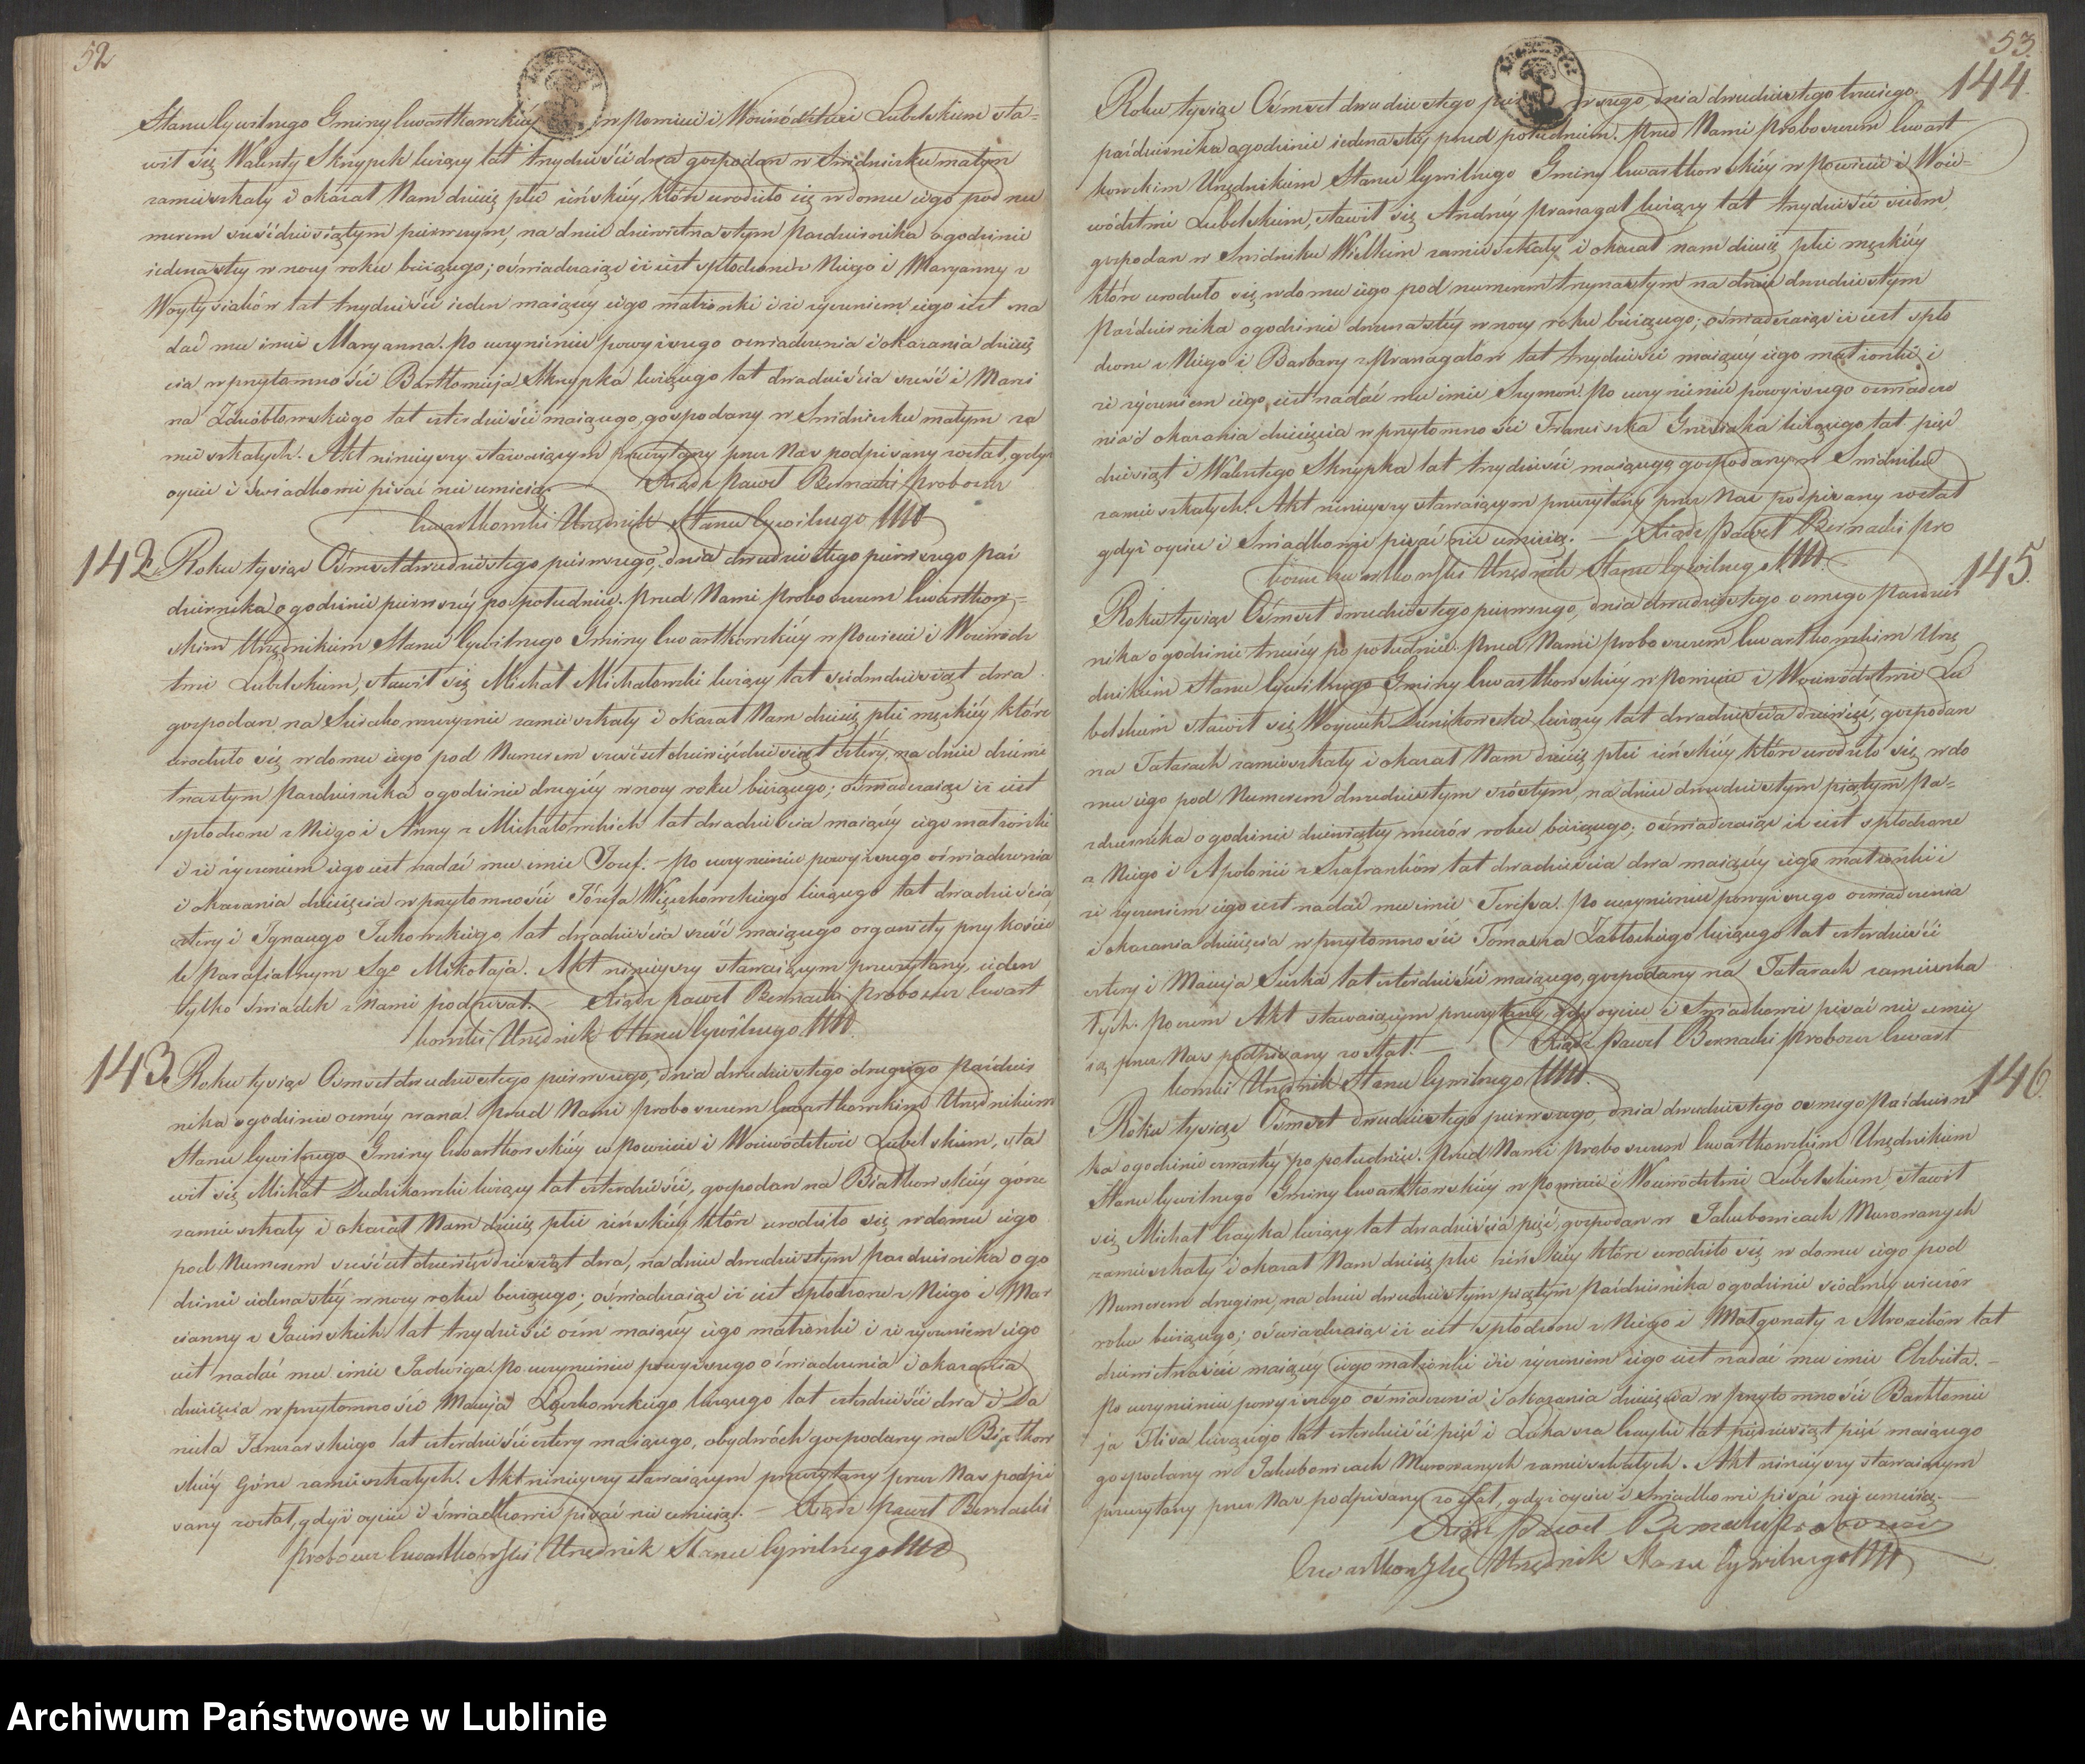 52
Stanu Cywilnego Gminy Czwartkowskiéy w Powiecie i Woiewództwie Lubelskiem sta-
wił się Walenty Skrzypek liczący lat trzydzieści dwa gospodarz w Swidniczku małym
zamieszkały i okazał Nam dziecię płci żeńskiéy, które urodziło się w domu iego pod nu
merem sześćdziesiątym pierwszym, na dniu dziewiętnastym Pazdziernika o godzinie
iedenastéy w nocy roku bieżącego; oświadczaiąc iż iest spłodzone z Niego i Maryanny z
Woytysiaków lat trzydzieści ieden maiącéy iego małżonki i że życzeniem iego iest na
dać mu imie Maryanna. Po uczynieniu powyższego oswiadczenia i okazania dziecię
cia w przytomności Bartłomieja Skrzypka liczącego lat dwadzieścia sześć i Marci
na lat czterdzieści maiącego, gospodarzy w Swidniczku małym za
mieszkałych. Akt ninieyszy stawaiącym przeczytany przez Nas podpisany został, gdyż
oyciec i świadkowie pisać nie umieią. Xiądz Paweł Bernacki Proboszcz
Czwartkowski Urzędnik Stanu Cywilnego
142. Roku tysiąc Osmset dwudziestego pierwszego, dnia dwudziestego pierwszego paź
dziernika o godzinie pierwszéy po południu. Przed Nami Proboszczem Czwartkow-
skim Urzędnikiem Stanu Cywilnego Gminy Czwartkowskiéy w Powiecie i Woiewódz
twie Lubelskiem, stawił się Michał Michałowski liczący lat siedmdziesiąt dwa
gospodarz na Sierakowszczyznie zamieszkały i okazał Nam dziecię płci męzkiéy które
urodziło się w domu iego pod Numerem sześćset dziewięćdziesiąt cztéry, na dniu dziewię
tnastym Pazdziernika o godzinie drugiéy w nocy roku bieżącego; oświadczaiąc iż iest
spłodzone z Niego i Anny z Michałowskich lat dwadzieścia maiącéy iego małżonki
i że życzeniem iego iest nadać mu imie Jozef. - Po uczynieniu powyższego oświadczenia
i okazania dziecięcia w przytomności Józefa Więckowskiego liczącego lat dwadzieścia
cztery i Ignacego Żukowskiego lat dwadzieścia sześć maiącego organisty przy koście
le Parafialnym Sgo Mikołaja. Akt ninieyszy stawaiącym przeczytany, ieden
tylko świadek z Nami podpisał. - Xiądz Paweł Bernacki Proboszcz Czwart
kowski Urzędnik Stanu Cywilnego
143. Roku tysiąc Osmset dwudziestego pierwszego, dnia dwudziestego drugiego Paździer
nika o godzinie osméy zrana. Przed Nami Proboszczem Czwartkowskim Urzędnikiem
Stanu Cywilnego Gminy Czwartkowskiéy w Powiecie i Woiewództwie Lubelskiem, sta
wił się Michał Dudzikowski liczący lat czterdzieści, gospodarz na Białkowskiéy górze
zamieszkały i okazał Nam dziecię płci żeńskiey które urodziło się w domu iego
pod Numerem sześćset dziewięćdziesiąt dwa, na dniu dwudziestym Pazdziernika o go
dzinie iedenastéy w nocy roku bieżącego; oświadczaiąc iż iest spłodzone z Niego i Mar
cianny z lat trzydzieści ośm maiącéy iego małżonki i że życzeniem iego
iest nadać mu imie Jadwiga. Po uczynieniu powyższego oświadczenia i okazania
dziecięcia w przytomności Macieja liczącego lat czterdzieści dwa i Da
niela Janczarskiego lat czterdzieści cztery maiącego, obydwóch gospodarzy na Białkow
skiéy Górze zamieszkałych. Akt ninieyszy stawaiącym przeczytany przez Nas podpi
sany został, gdyż oyciec i świadkowie pisać nie umieią. - Xiądz Paweł Bernacki
Proboszcz Czwartkowski Urzędnik Stanu Cywilnego
53.
144. Roku tysiąc Osmset dwudziestego pierwszego, dnia dwudziestego trzeciego
pazdziernika o godzinie iedenastéy przed południem. Przed Nami Proboszczem Czwart
kowskim Urzędnikiem Stanu Cywilnego Gminy Czwartkowskiéy w Powiecie i Woie-
wództwie Lubelskiem, stawił się Andrzéy Pranagal liczący lat trzydzieści siedm,
gospodarz w Swidniku Wielkim zamieszkały i okazał nam dziecię płci męzkiéy
które urodziło się w domu iego pod numerem trzynastym na dniu dwudziestym
Października o godzinie dwunastéy w nocy roku bieżącego; oświadczaiąc iż iest spło
dzone z Niego i Barbary z Pranagalow lat trzydzieści maiącéy iego małżonki, i
że życzeniem iego iest nadać mu imie Szymon. Po uczynieniu powyższego oswiadcze
nia i okazania dziecięcia w przytomności Franciszka liczącego lat pięć
dziesiąt i Walentego Skrzypka lat trzydzieści maiącego gospodarzy w Swidniku
zamieszkałych. Akt ninieyszy stawaiącym przeczytany przez Nas podpisany został
gdyż oyciec i Swiadkowie pisać nie umieią. - Xiądz Paweł Bernacki Pro
boszcz Czwartkowski Urzędnik Stanu Cywilnego
145. Roku tysiąc Osmset dwudziestego pierwszego, dnia dwudziestego osmego Pazdzier
nika o godzinie trzeciéy po południu. Przed Nami Proboszczem Czwartkowskim Urzę
dnikiem Stanu Cywilnego Gminy Czwartkowskiéy w Powiecie i Woiewództwie Lu
belskiem stawił się Woyciech liczący lat dwadzieścia dziewięć, gospodarz
na Tatarach zamieszkały i okazał Nam dziecię płci żeńskiéy które urodziło się w do
mu iego pod Numerem dwudziestym szóstym, na dniu dwudziestym piątym Pa-
zdziernika o godzinie dziewiątéy wieczór roku bieżącego; oświadczaiąc iż iest spłodzone
z Niego i Apolonii z Szafranków lat dwadzieścia dwa maiącéy iego małżonki i
że życzeniem iego iest nadać mu imie Teressa. Po uczynieniu powyższego oswiadczenia
i okazania dziecięcia w przytomności Tomasza Zabłockiego liczącego lat czterdzieści
cztery i Macieja lat czterdzieści maiącego, gospodarzy na Tatarach zamieszka
łych. Poczem Akt stawaiącym przeczytany, gdy oyciec i Swiadkowie pisać nie umie
ią przez Nas podpisany został. - Xiądz Paweł Bernacki Proboszcz Czwart
kowski Urzędnik Stanu Cywilnego
146. Roku tysiąc Osmset dwudziestego pierwszego, dnia dwudziestego osmego Październi
ka o godzinie czwartéy po południu. Przed Nami Proboszczem Czwartkowskim Urzędnikiem
Stanu Cywilnego Gminy Czwartkowskiéy w Powiecie i Woiewództwie Lubelskiem stawił
się Michał Czayka liczący lat dwadzieścia pięć, gospodarz w Jakubowicach Murowanych
zamieszkały i okazał Nam dziecię płci żeńskiéy które urodziło się w domu iego pod
Numerem drugim, na dniu dwudziestym piątym Pazdziernika o godzinie siódméy wieczór
roku bieżącego; oświadczaiąc iż iest spłodzone z Niego i Małgorzaty z Mrozików lat
dziewiętnaście maiącéy iego małżonki i że życzeniem iego iest nadać mu imie Elzbieta. -
Po uczynieniu powyższego oświadczenia i okazania dziecięcia w przytomności Bartłomie
ja liczącego lat czterdzieści pięć i Łukasza Czayki lat pięćdziesiąt pięć maiącego
gospodarzy w Jakubowicach Murowanych zamieszkałych. Akt ninieyszy stawaiącym
przeczytany przez Nas podpisany został, gdyż oyciec i Swiadkowie pisać nie umieią. -
Xiądz Paweł Bernacki Proboszcz
Czwartkowski Urzędnik Stanu Cywilnego
Archiwum Państwowe w Lublinie